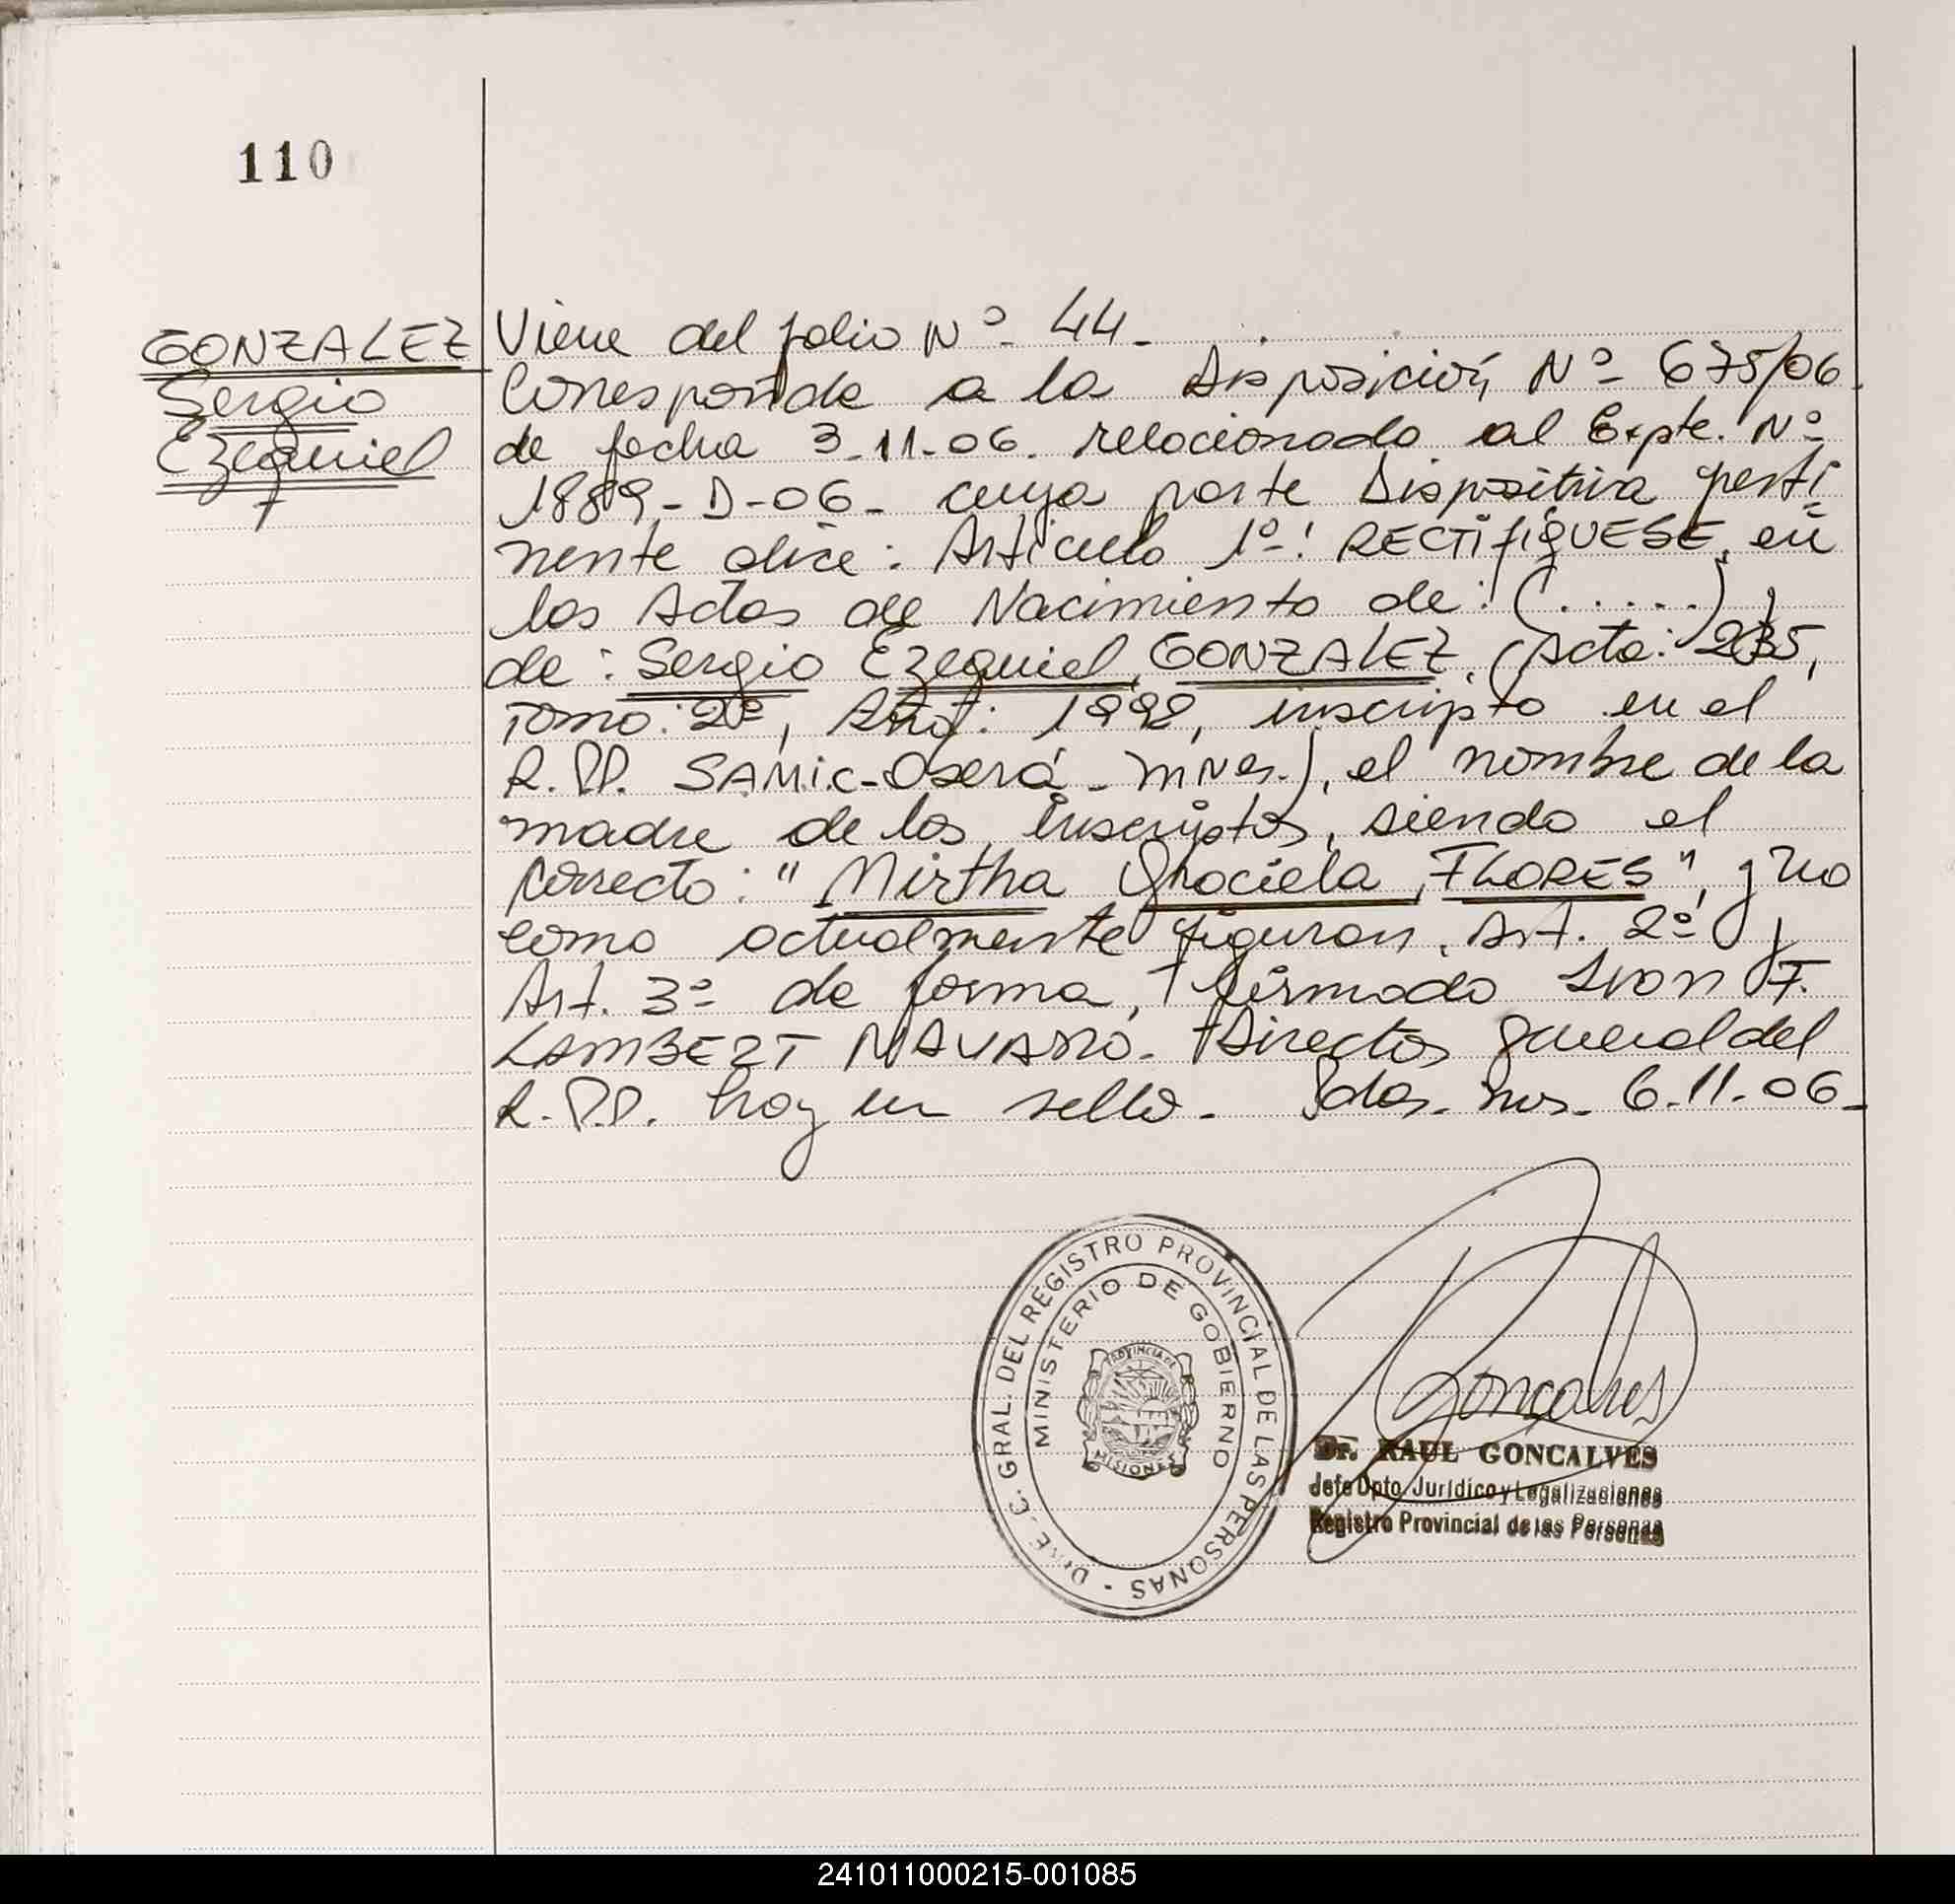 110
GONZALEZ
Sergio
Ezequiel
Viene del folio Nº 44.
Corresponde a la Disposición Nº 675/06.
de fecha 3-11-06. relacionado al Expte. Nº
1889-D-06- cuya parte Dispositiva perti
nente dice: Artículo 1º: RECTIFIQUESE, en
las Actas de Nacimiento de: (......) y
de: Sergio Ezequiel GONZALEZ, (Acta:
Tomo: 2º, Año: 1992, inscripto en el
R.PP. SAMIC-Oberá-Mnes.), el nombre de la
madre de los inscriptos, siendo el
correcto: "Mirtha Graciela FLORES", y no
como actualmente figuran. Art. 2º y
Art. 3º de forma, firmado Ivon F.
LAMBERT NAVARRO. Director General del
R.P.P. hay un sello. Pdas. Mns. 6.11.06-
DIREC. GRAL. DEL REGISTRO PROVINCIAL DE LAS PERSONAS -
MINISTERIO DE GOBIERNO
PROVINCIA DE
MISIONES
Goncalves
Dr. RAUL GONCALVES
Jefe Dpto. Jurídico y Legalizaciones
Registro Provincial de las Personas
241011000215-001085